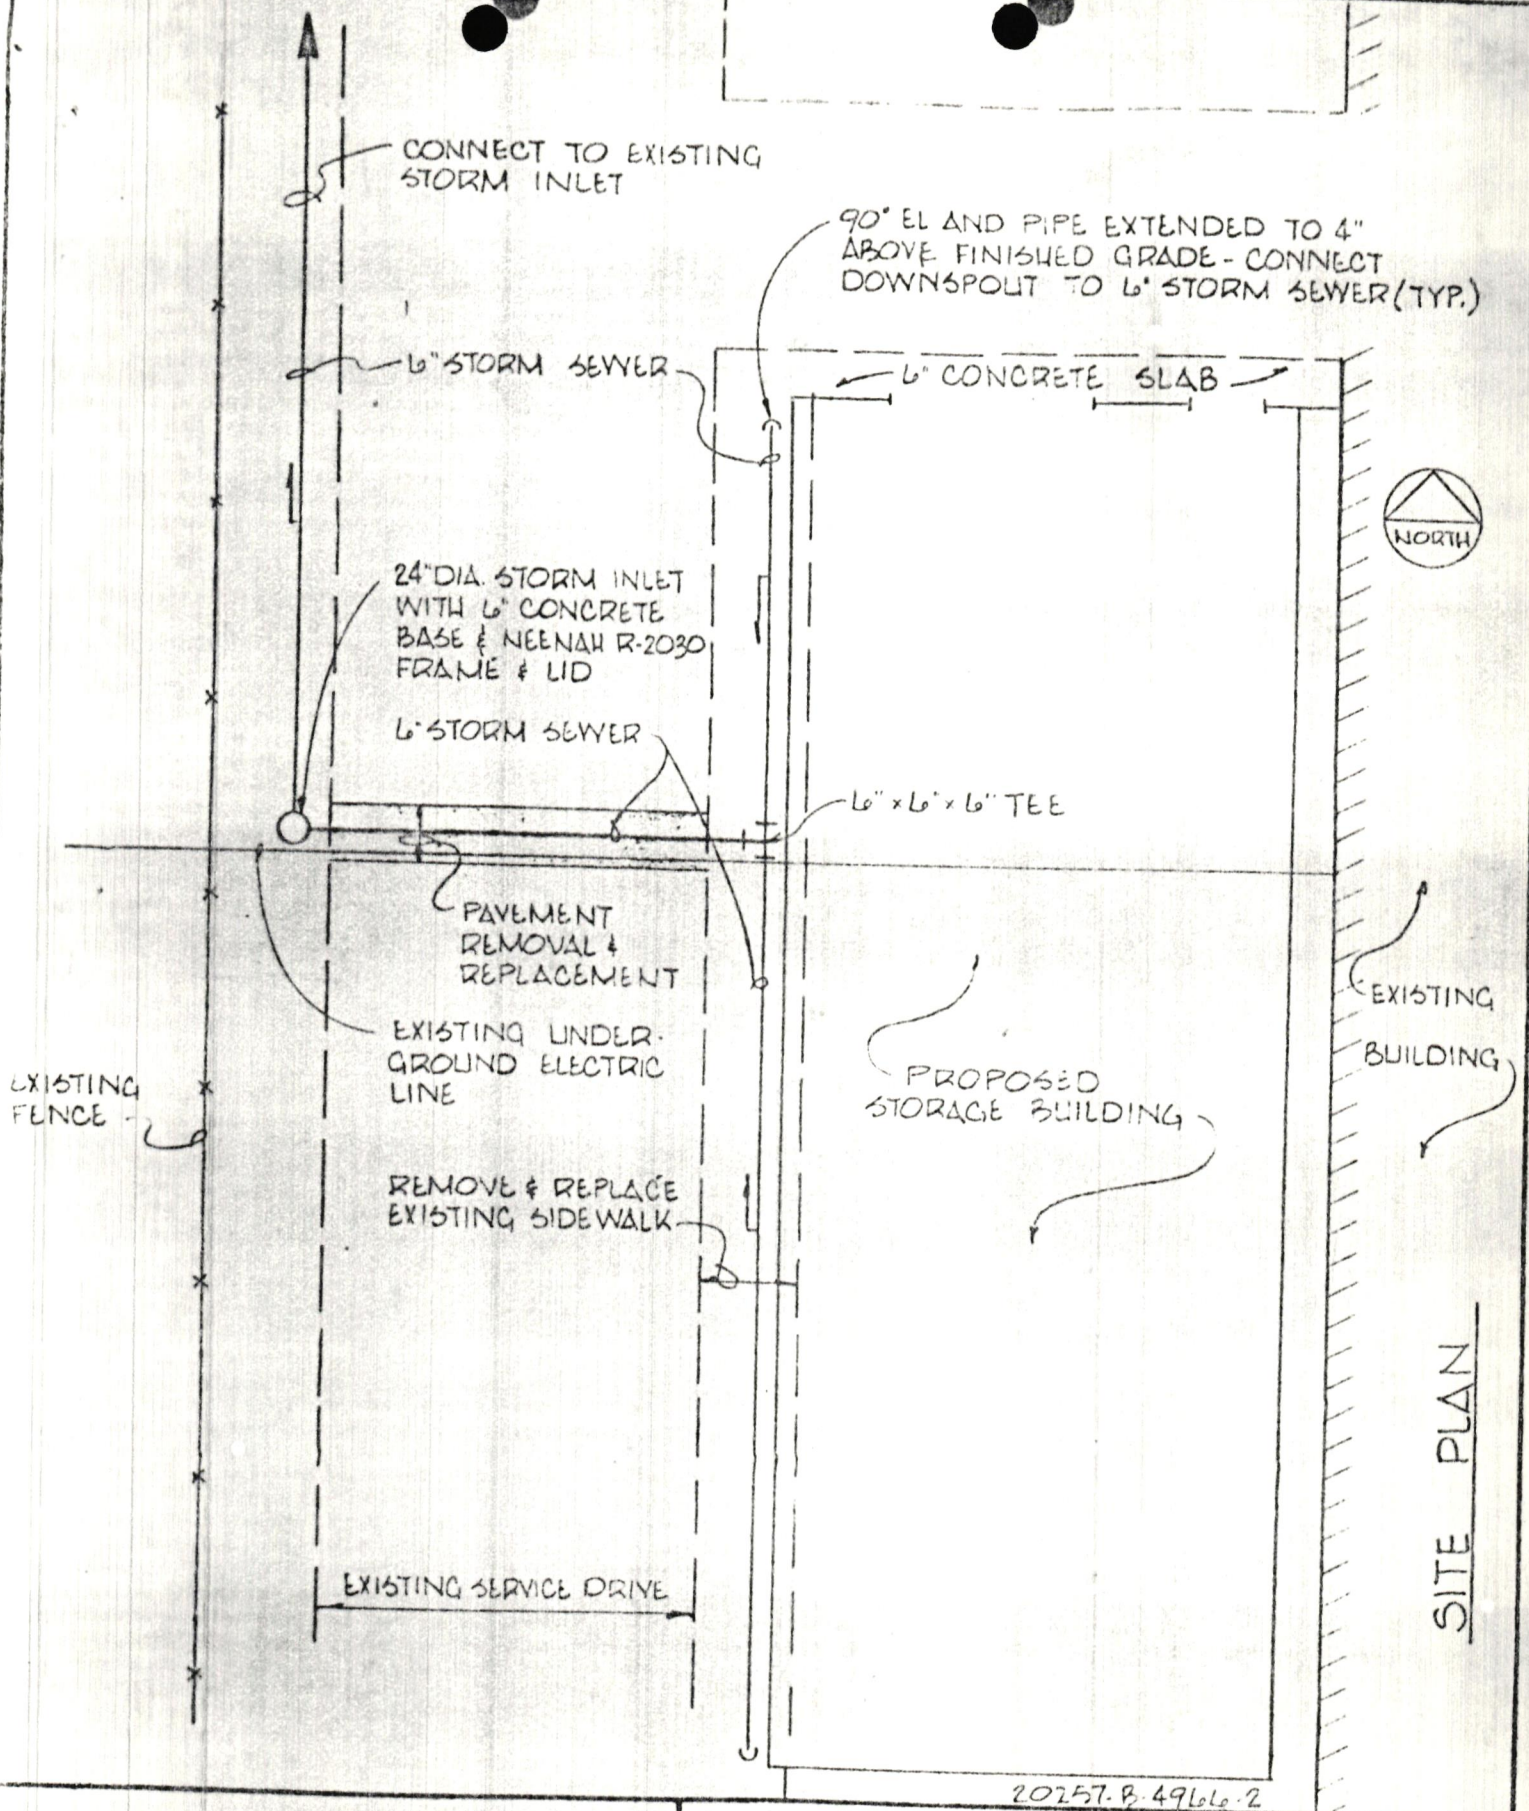 CONNECT TO EXISTING
STORM INLET
90° EL AND PIPE EXTENDED TO 4"
ABOVE FINISHED GRADE - CONNECT
DOWNSPOUT TO 6" STORM SEWER (TYP.)
6" STORM SEWER
6" CONCRETE SLAB
NORTH
24" DIA. STORM INLET
WITH 6" CONCRETE
BASE & NEENAH R-2030
FRAME & LID
6" STORM SEWER
6" x 6" x 6" TEE
PAVEMENT
REMOVAL &
REPLACEMENT
EXISTING
BUILDING
EXISTING UNDER-
GROUND ELECTRIC
LINE
EXISTING
FENCE
PROPOSED
STORAGE BUILDING
REMOVE & REPLACE
EXISTING SIDEWALK
SITE PLAN
EXISTING SERVICE DRIVE
20257-B-4966-2